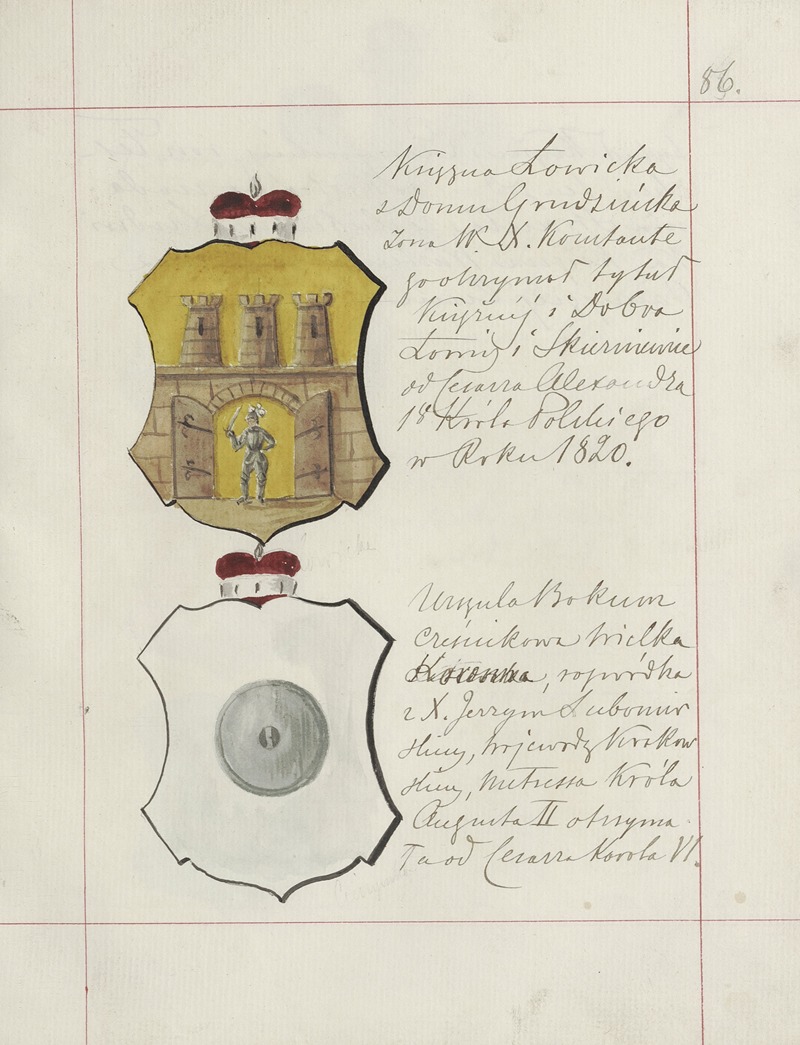 86.
Księżna Łowicka
z Domu Grudzińska
żona W. X. Konstante
go otrzymał tytuł
Księżnij i Dobra
Łowicz i Skierniewice
od Cesarza Alexandra
1º Króla Polskiego
w Roku 1820.
Urszula Bokum
Cześnikowa Wielka
Koronna, rozwódka
z X. Jerzym Lubomir
skim, Wojewodą Krakow
skim, Metressa Króla
Augusta II otrzyma-
ła od Cesarza Karola VI.